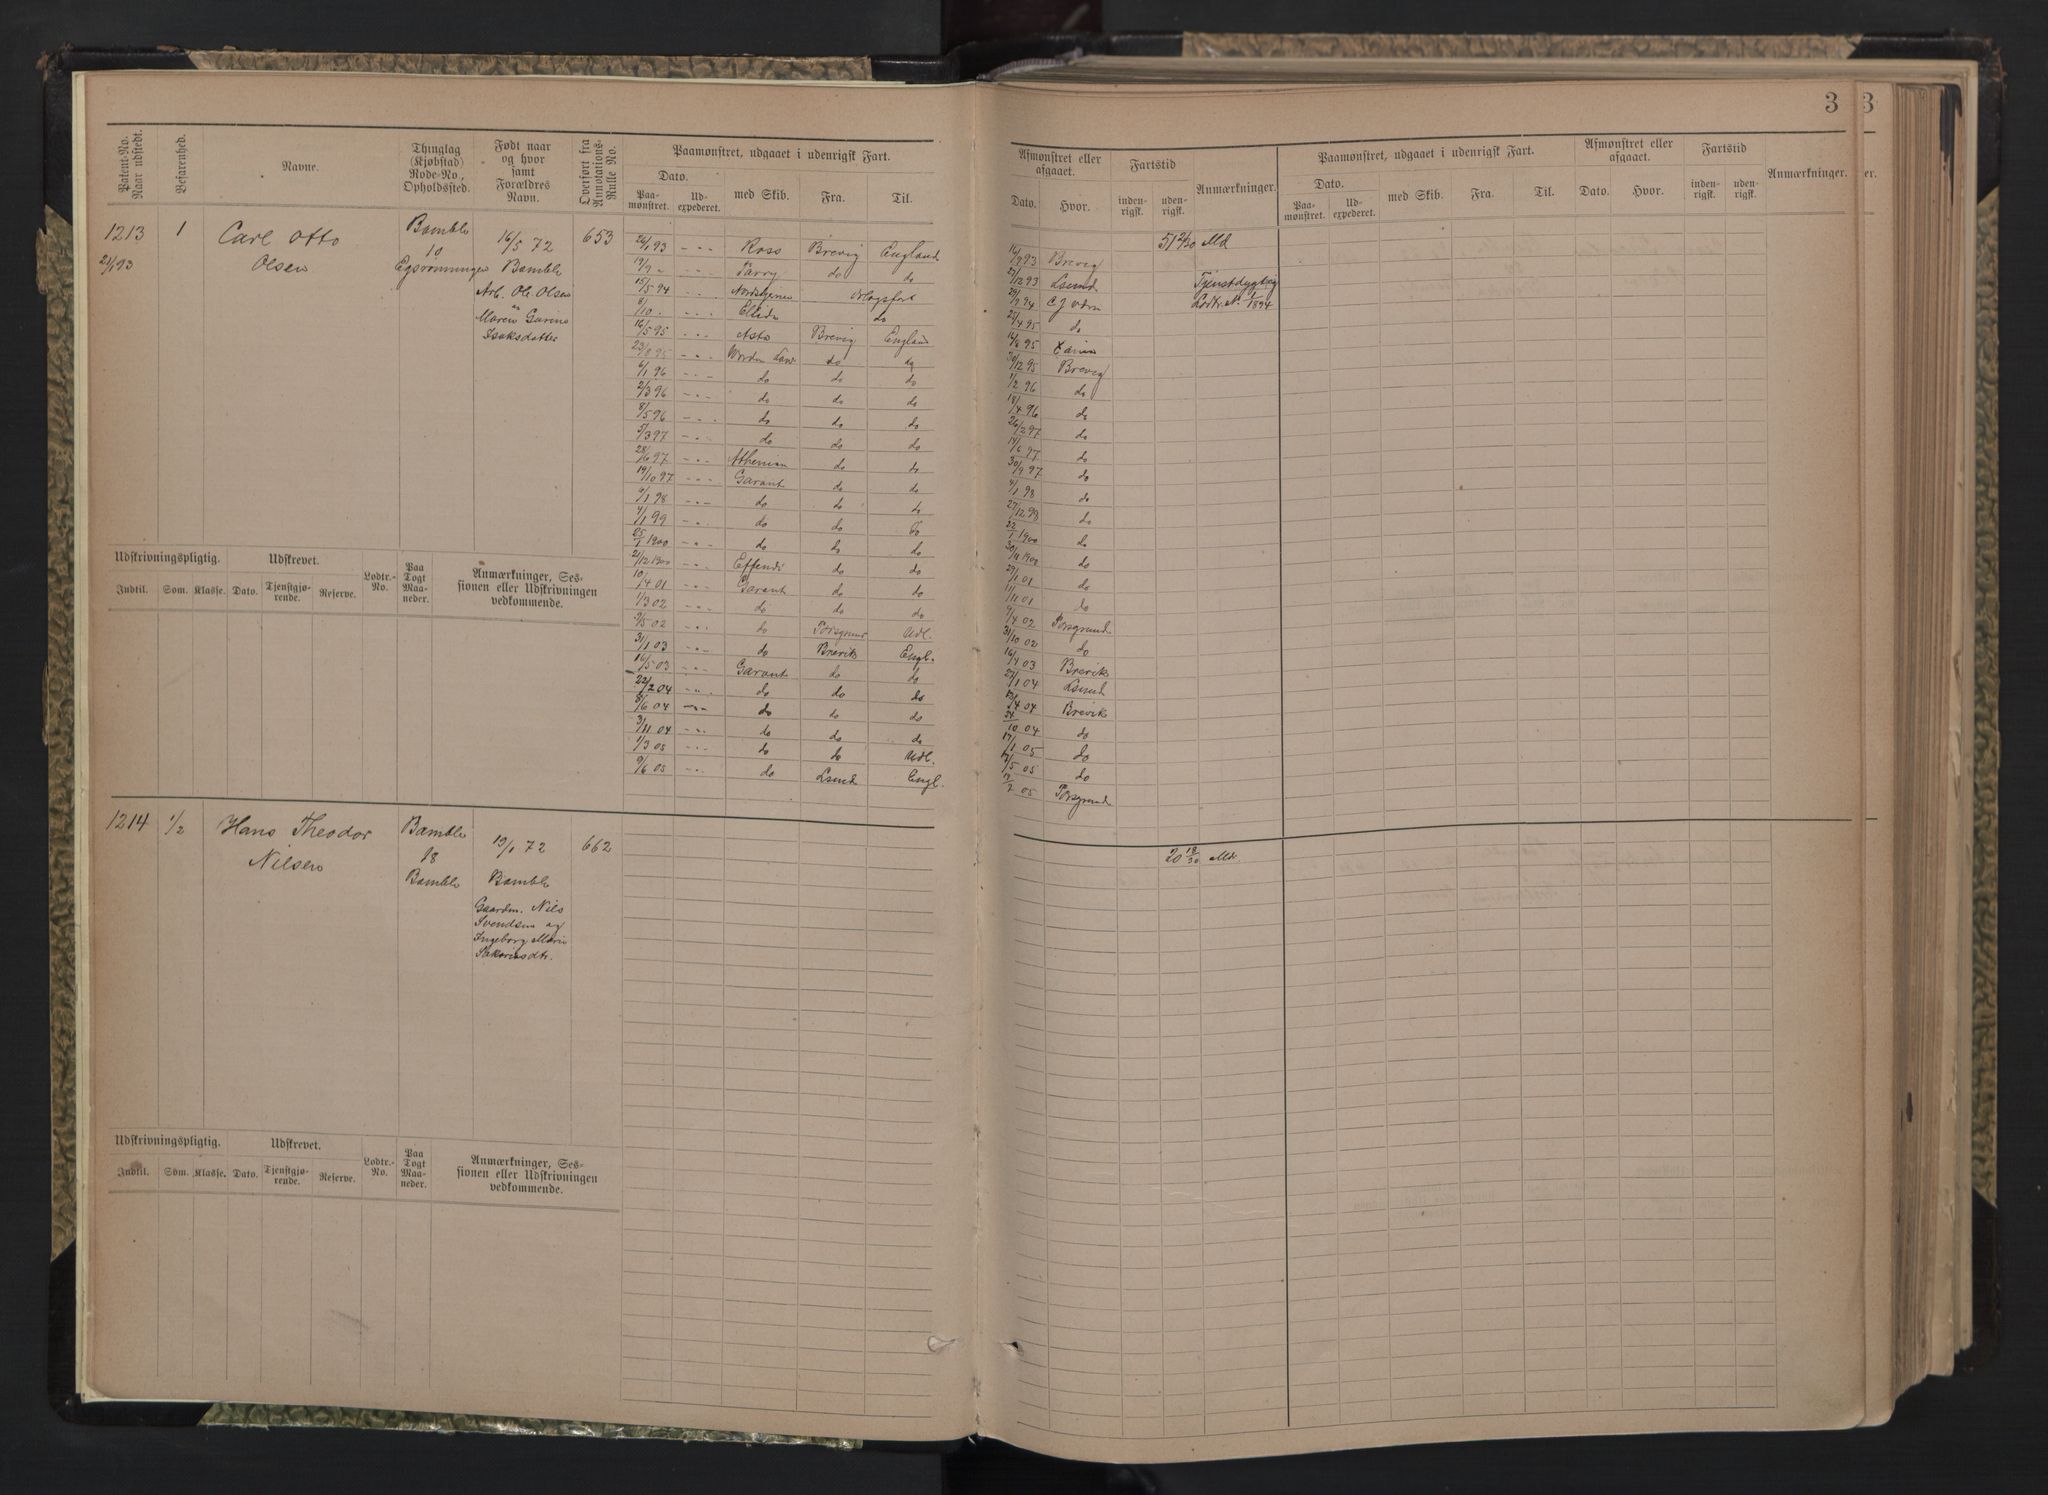 3
3
Patent-No. Naar udstedt.
Befarenhed.
Navne.
Thinglag (Kjøbstad) Rode-No, Opholdssted.
Født naar og hvor samt Forældres Navn.
Overført fra Annotations-Rulle No.
Paamønstret, udgaaet i udenrigsk Fart.
Dato.
Paa-mønstret.
Ud-expederet.
med Skib.
Fra.
Til.
Afmønstret eller afgaaet.
Dato.
Hvor.
Fartstid
inden-rigsk.
uden-rigsk.
Anmærkninger.
Paamønstret, udgaaet i udenrigsk Fart.
Dato.
Paa-mønstret.
Ud-expederet.
med Skib.
Fra.
Til.
Afmønstret eller afgaaet.
Dato.
Hvor.
Fartstid
inden-rigsk.
uden-rigsk.
Anmærkninger.
er.
1213
1
Carl Otto
Olsen
Bamble
10
16/5 72
Bamble
Arb. Ole Olsen
Maren
Isaksdatter
653
26/1 93 Ross Brevig England
Parry do do
15/5 94
8/10
16/5 95 Asta Brevig England
23/8 95 do do
6/1 96 do do do
2/3 96 do do do
8/5 96 do do do
5/3 97 do do do
28/6 97 Athenian do do
19/10 97 Garant do do
9/1 98 do do do
4/1 99 do do
25/1 1900 do do do
21/12 1900 Effendi do do
10/4 01 Garant do do
1/3 02 do do do
9/5 02 do Udl.
31/1 03 do Brevik Engl.
16/5 03 Garant do do
22/2 04 do do do
8/6 04 do do do
3/11 04 do do do
1/3 05 do do Udl.
9/6 05 do Lsund Engl.
Md
Brevig
27/12 93 Lsund Tjenstdygtig
29/9 94 Lodtr. No 1/1894
25/4 95 do
30/12 95 Brevig
1/2 96 do
18/4 96 do
26/2 97 do
14/6 97 do
30/9 97 do
4/1 98 do
27/12 98 do
22/1 1900 do
30/11 1900 do
29/1 01 do
11/11 01 do
9/4 02 Porsgrund
31/10 02 do
16/4 03 Brevik
27/1 04 Lsund
Brevik
do
17/1 05 do
do
Porsgrund
Udskrivningspligtig.
Udskrevet.
Indtil.
Som.
Klasse.
Dato.
Tjenstgjø-rende.
Reserve.
Lodtr.-No.
Paa Togt Maa-neder.
Anmærkninger, Ses-
sionen eller Udskrivningen
vedkommende.
1214
1/2
Hans Theodor
Nilsen
Bamble
18
Bamble
19/1 72
Bamble
Gaardm. Nils
Svendsen og
Ingeborg Marie
662
20 18/30 Md.
Udskrivningspligtig.
Udskrevet.
Indtil.
Som.
Klasse.
Dato.
Tjenstgjø-rende.
Reserve.
Lodtr.-No.
Paa Togt Maa-neder.
Anmærkninger, Ses-
sionen eller Udskrivningen
vedkommende.